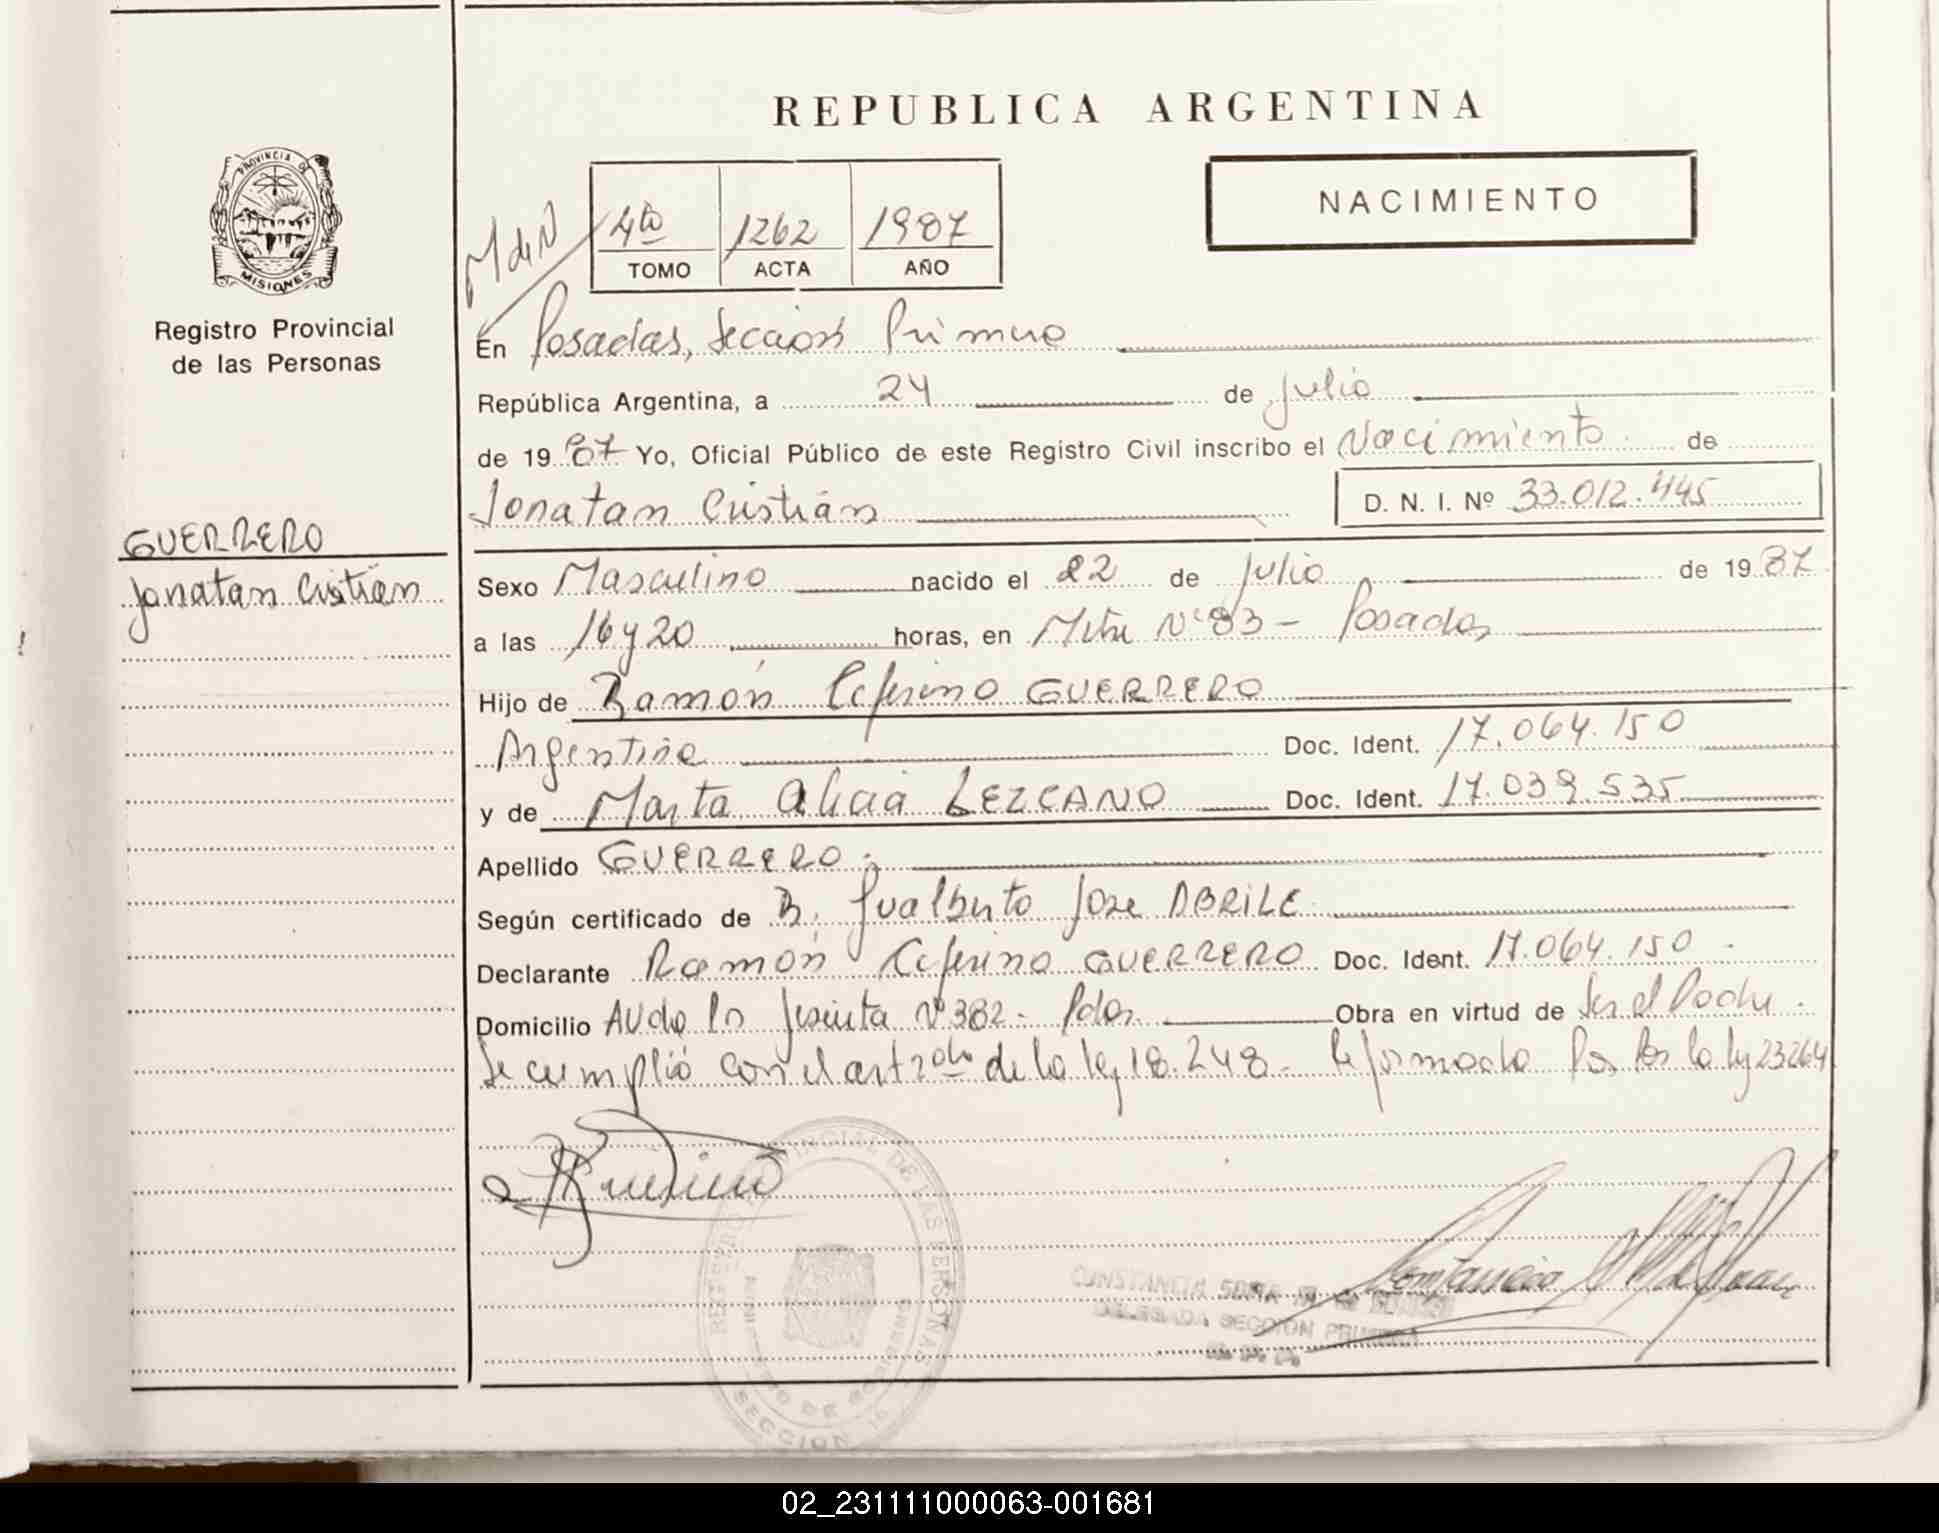 REPUBLICA ARGENTINA
PROVINCIA DE
MISIONES
Registro Provincial
de las Personas
NACIMIENTO
M de N
4to 1262 1987
TOMO ACTA AÑO
En Posadas, Sección Primera
República Argentina, a 24 de Julio
de 1987 Yo, Oficial Público de este Registro Civil inscribo el Nacimiento de
Jonatan Cristián D. N. I. Nº 33.012.445
GUERRERO
Jonatan Cristián
Sexo Masculino nacido el 22 de Julio de 1987
a las 16 y 20 horas, en Mitre Nº 83 - Posadas
Hijo de Ramón Ceferino GUERRERO
Argentina Doc. Ident. 17.064.150
y de Marta Alicia LEZCANO Doc. Ident. 17.039.535
Apellido GUERRERO.-
Según certificado de Gualberto Jose ABRILE
Declarante Ramón Ceferino GUERRERO Doc. Ident. 17.064.150 -
Domicilio Nº 382 - Pdas. Obra en virtud de Ser el Padre -
Se cumplió con el art 2do de la ley 18.248 - Reformada por la ley 23264
REGISTRO PROVINCIAL DE LAS PERSONAS
SECCION 1ª
CONSTANCIA
DELEGADA SECCION PRIMERA
02_231111000063-001681